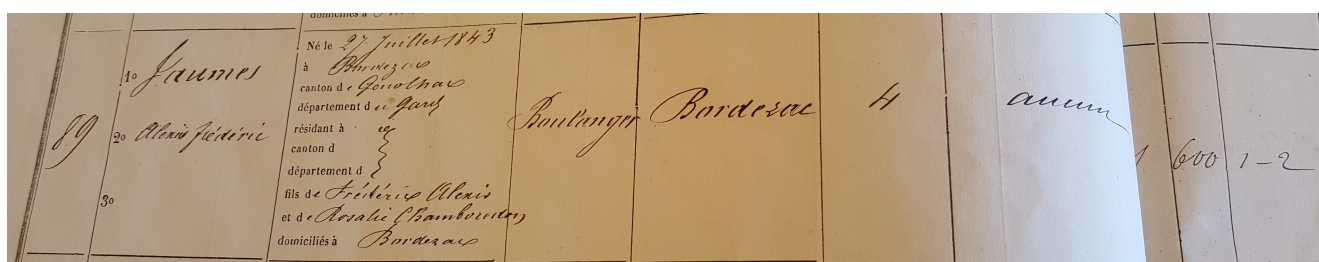 domiciliés à
89
1º Jaumes
2º Alexis frédéric
3º
Né le 27 Juillet 1843
à Bordezac
canton de Génolhac
département du Gard
résidant à
canton d
département d
fils de Frédéric Alexis
et de Rosalie Chamboredon
domiciliés à Bordezac
Boulanger
Bordezac
4
aucun
600
1-2